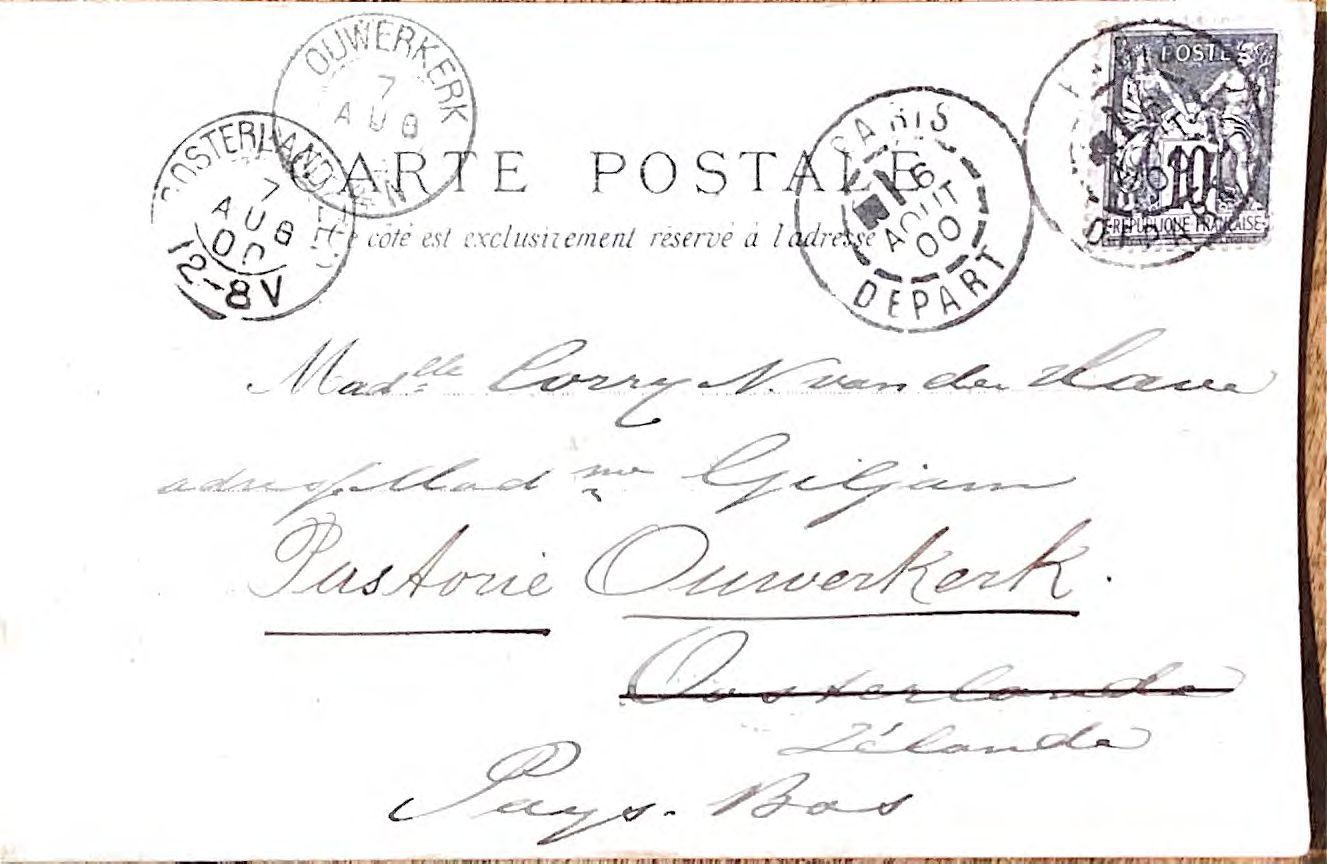 OUWERKERK
7
AUG
OOSTERLAND
7
AUG
00
12-8V
PARIS
6
AOUT
00
DEPART
POSTE
10
REPUBLIQUE FRANCAISE
CARTE POSTALE
Ce côté est exclusivement réservé à l'adresse
Madlle Corry N. van der Have
adres Madme Giljam
Pastorie Ouwerkerk.
Oosterlande
Zélande
Pays-Bas